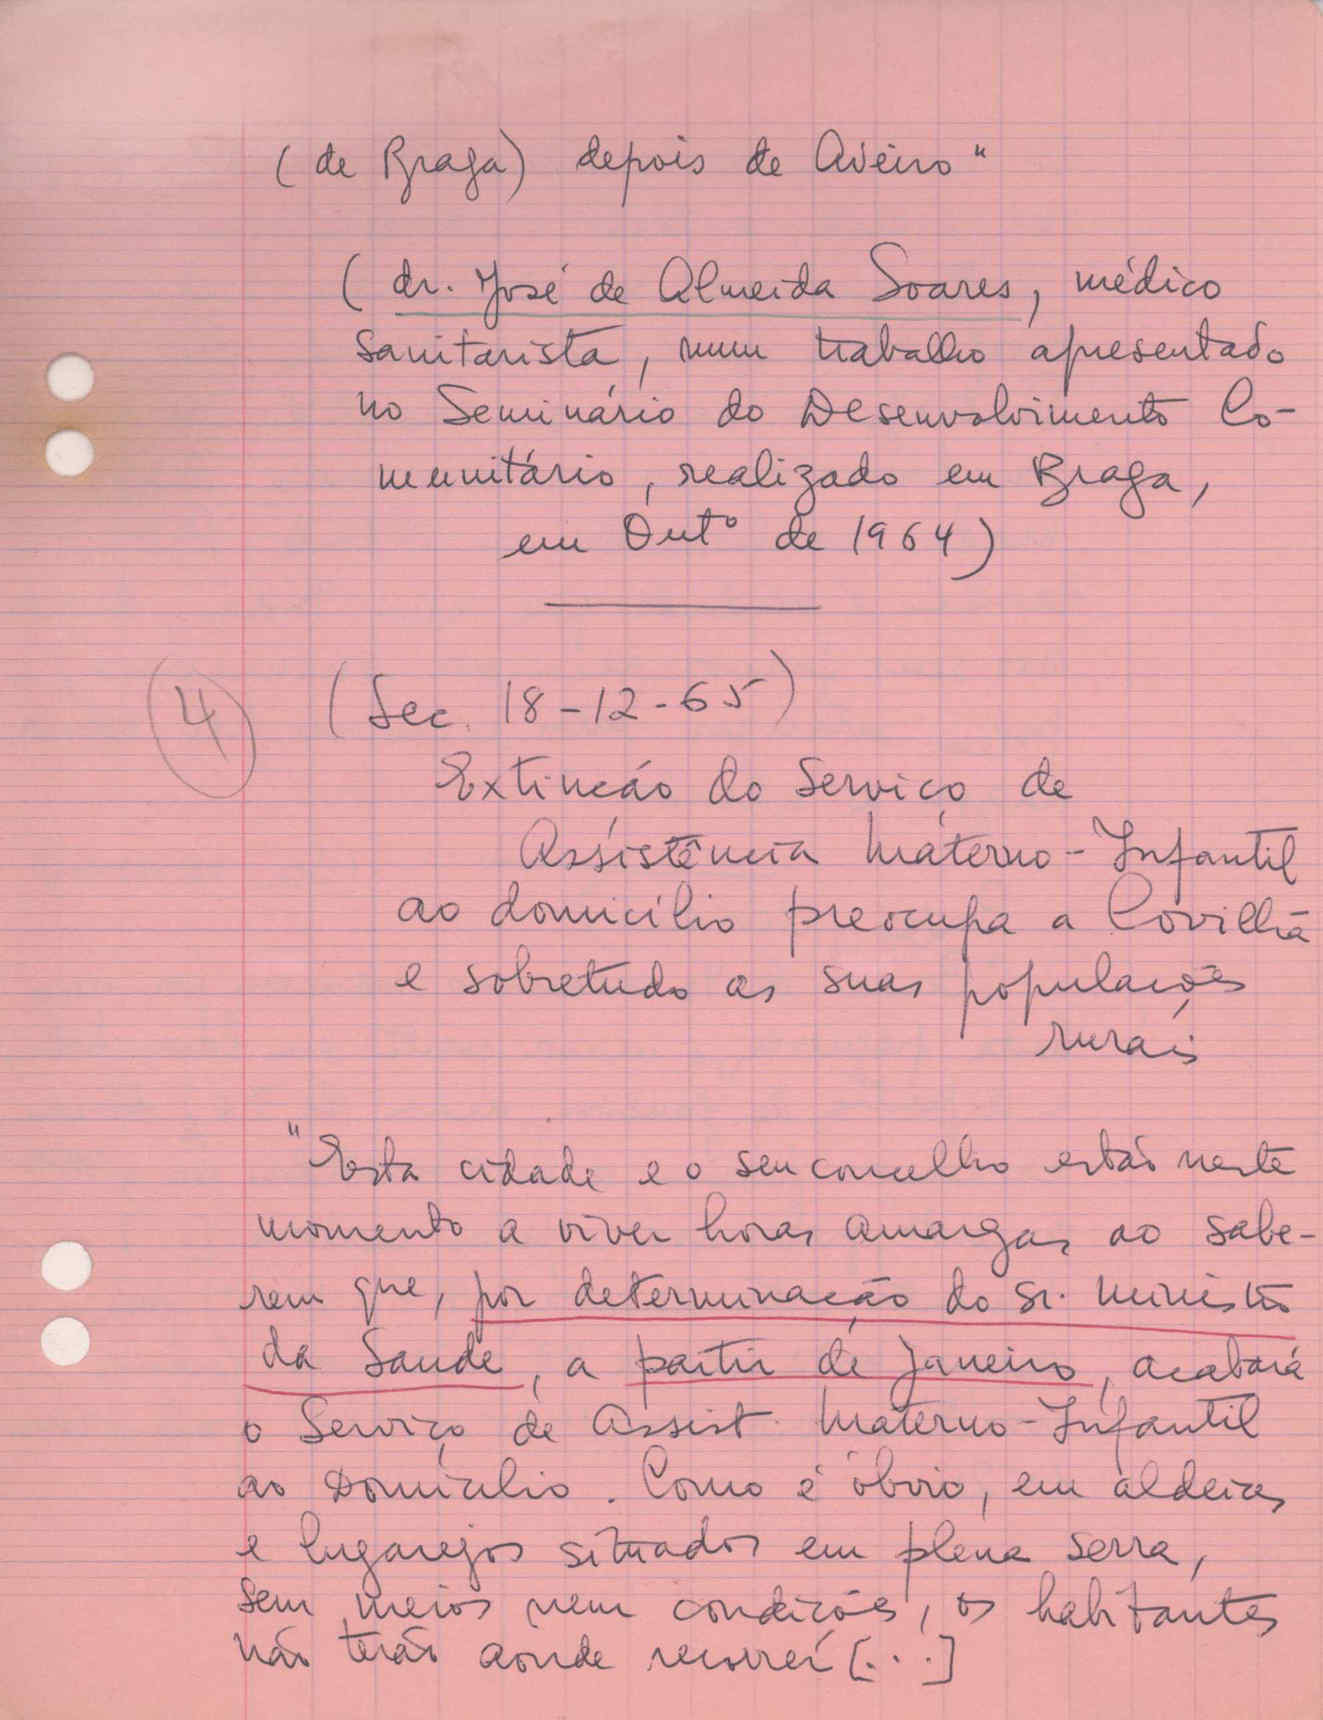 (de Braga) depois de Aveiro"
(dr. José de Almeida Soares, médico
sanitarista, num trabalho apresentado
no Seminário do Desenvolvimento Co-
munitário, realizado em Braga,
em Outº de 1964)
4
(Sec. 18-12-65)
Extinção do Serviço de
Assistência Materno-Infantil
ao domicílio preocupa a Covilhã
e sobretudo as suas populações
rurais
"Esta cidade e o seu concelho estão neste
momento a viver horas amargas ao sabe-
rem que, por determinação do sr. Ministro
da Saude, a partir de Janeiro, acabará
o Serviço de Assist. Materno-Infantil
ao Domicílio. Como é óbvio, em aldeias
e lugarejos situados em plena serra,
sem meios nem condições, os habitantes
não terão aonde recorrer [...]